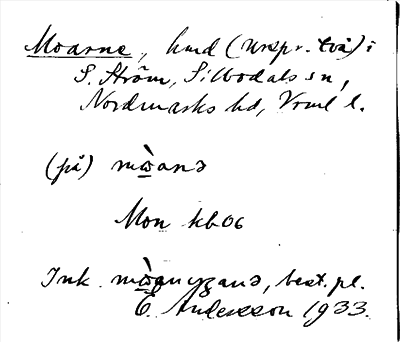 Moarne, hmd (urspr. två) i
S. Ström, Sillbodals sn,
Nordmarks hd, Vrml l.
(på) mὼanə
Mon kb 06
Ink. best. pl.
E. Andersson 1933.